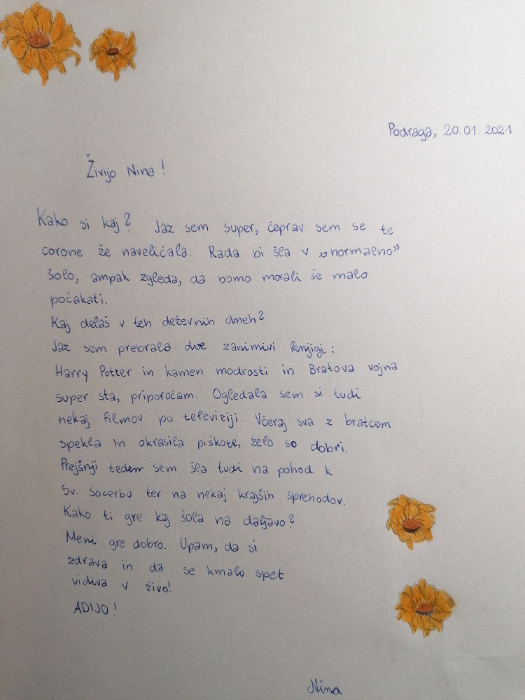 Podraga, 20.01.2021
Živijo Nina!
Kako si kaj? Jaz sem super, čeprav sem se te
corone že naveličala. Rada bi šla v »normalno»
šolo, ampak zgleda, da bomo morali še malo
počakati.
Kaj delaš v teh deževnih dneh?
Jaz sem prebrala dve zanimivi knjigi:
Harry Potter in kamen modrosti in Bratova vojna
super sta, priporočam. Ogledala sem si tudi
nekaj filmov po televiziji. Včeraj sva z bratcem
spekla in okrasila piškote, zelo so dobri.
Prejšnji teden sem šla tudi na pohod k
Sv. Socerbu ter na nekaj krajših sprehodov.
Kako ti gre kaj šola na daljavo?
Meni gre dobro. Upam, da si
zdrava in da se kmalu spet
vidiva v živo!
ADIJO!
Nina